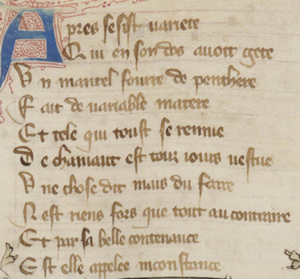 Apres se sist variete
Qui en son dos avoit gete
Un mantel fourre de penthere
Fait de variable matere
Et tele qui toust se remue
De chaniant est touz iours vestue
Une chose dit mais du ferre
N est riens fors que tout au contraire
Et par sa belle contenance
Est elle appelee inconstance